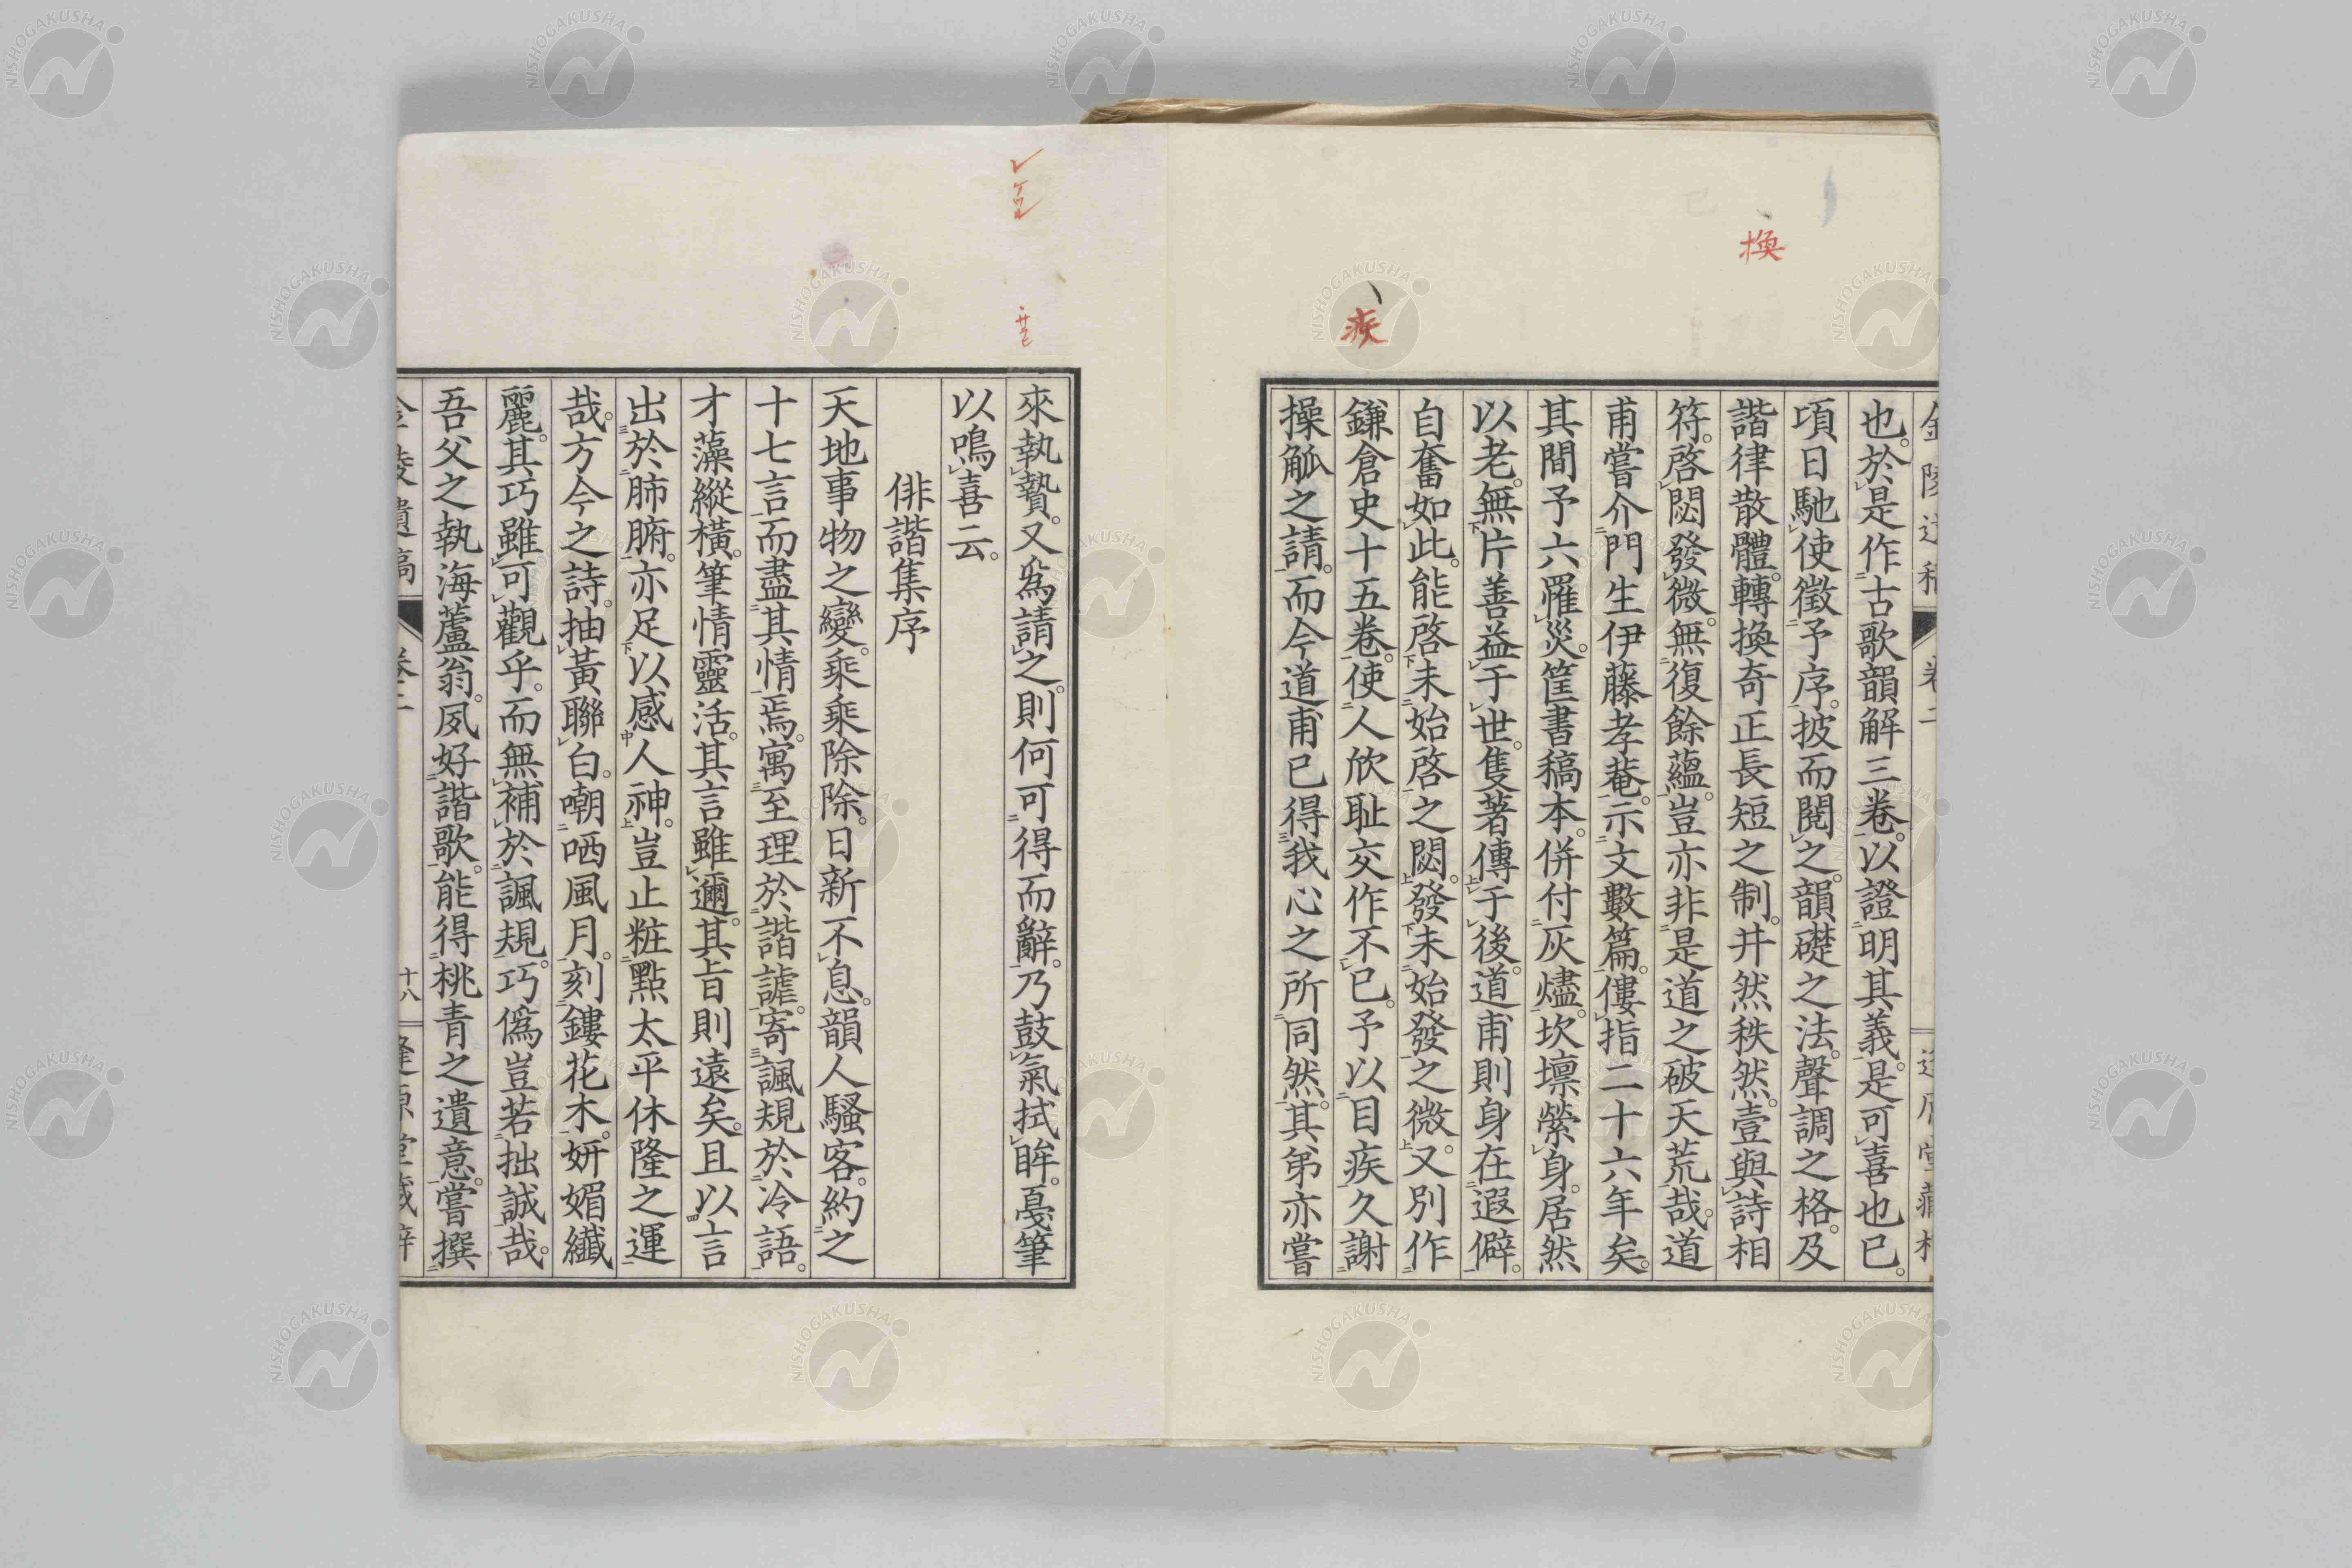 換
疾
也。於是作古歌韻解三卷。以證明其義。是可喜也已。
項日馳使徵予序。披而閱之。韻礎之法。聲調之格。及
諧律散體。轉換奇正長短之制。井然秩然。壹與詩相
符。啓閟發微。無復餘蘊。豈亦非是道之破天荒哉。道
甫嘗介門生伊藤孝菴。示文數篇。僂指二十六年矣。
其間予六罹災。筐書稿本。併付灰燼。坎壈縈身。居然
以老。無片善益于世。隻著傳于後。道甫則身在遐僻。
自奮如此。能啓未始啓之閟。發未始發之微。又別作
鎌倉史十五卷。使人欣耻交作不已。予以目疾久謝
操觚之請。而今道甫已得我心之所同然。其弟亦嘗
來執贄。又爲請之。則何可得而辭。乃鼓氣拭眸。戞筆
以鳴喜云。
俳諧集序
天地事物之變。乘乘除除。日新不息。韻人騷客。約之
十七言而盡其情焉。寓至理於諧謔。寄諷規於冷語。
才藻縱橫。筆情靈活。其言雖邇。其旨則遠矣。且以言
出於肺腑。亦足以感人神。豈止粧點太平休隆之運
哉。方今之詩。抽黃聯白。嘲哂風月。刻鏤花木。妍媚纖
麗。其巧雖可觀乎。而無補於諷規。巧僞豈若拙誠哉。
吾父之執海蘆翁。夙好諧歌。能得桃青之遺意。嘗撰
十八